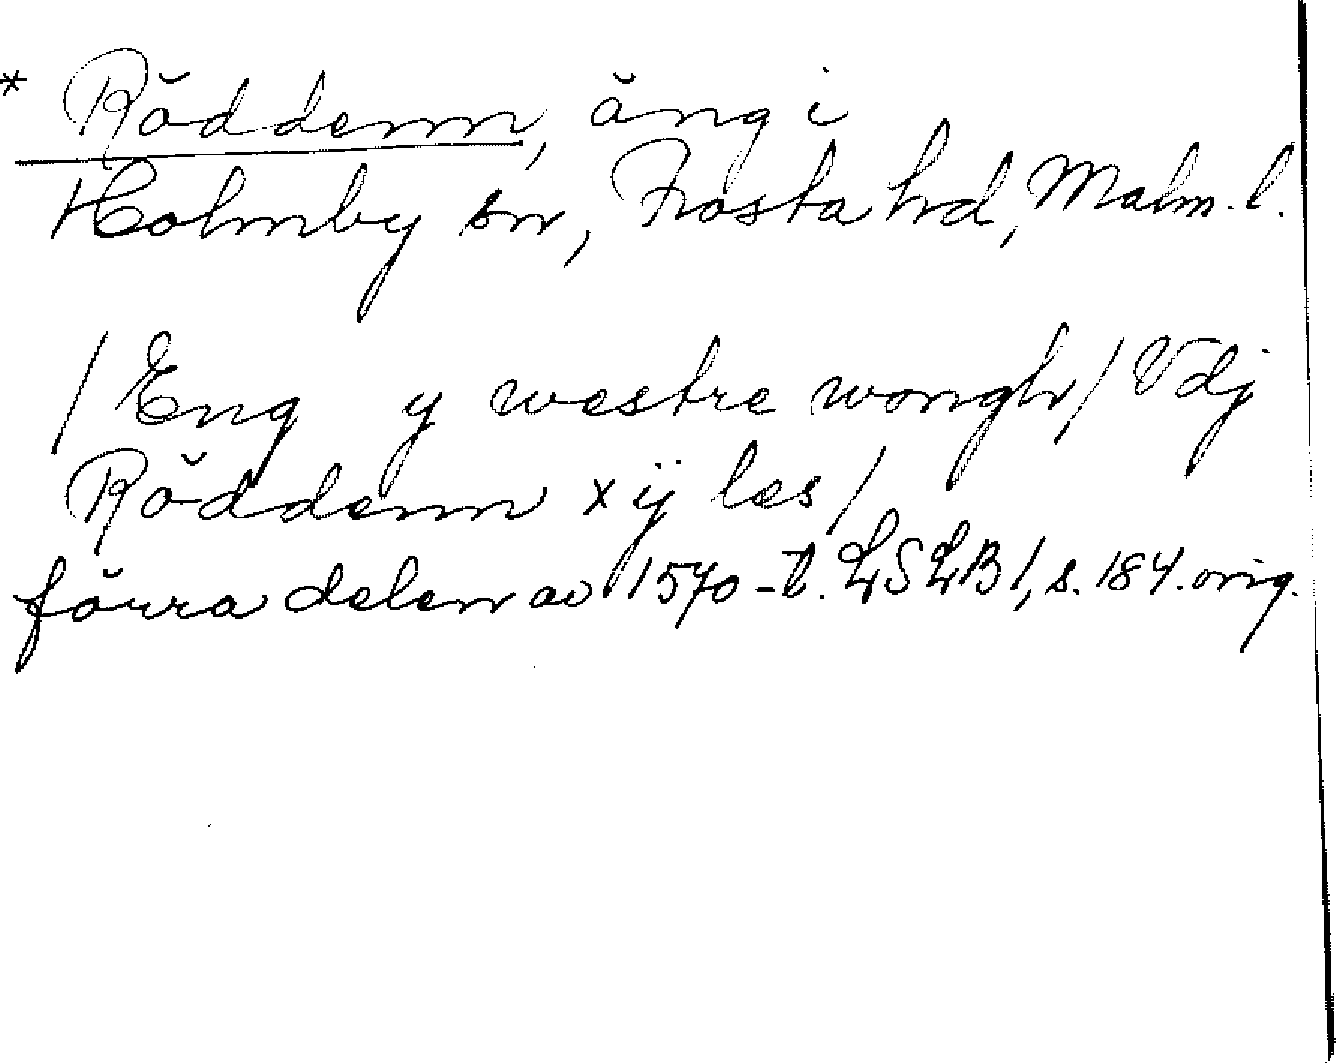 * Röddenn, äng i
Holmby sn, Frosta hd, Malm. l.
/ Eng y westre wongh / Vdj
Röddenn xij les /
förra delen av 1570-t. LSLB 1, s. 184. orig.